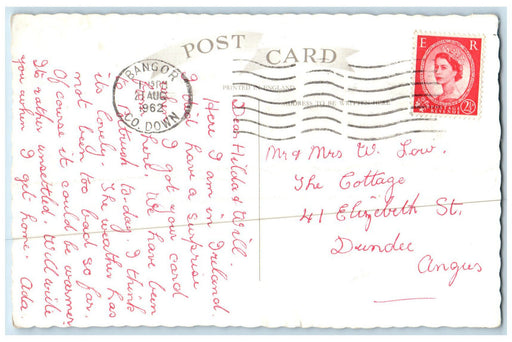 POST CARD
PRINTED IN ENGLAND
ADDRESS TO BE WRITTEN HERE
BANGOR
AUG
1962
CO. DOWN
E R
2½D
Dear Hilda & Will.
Here I am in Ireland.
I'll have a surprise
I got your card
here. We have been
to-day. I think
its lovely. The weather has
not been too bad so far.
Of course it could be warmer
Its rather unsettled. Will write
you when I get home. Ada.
Mr & Mrs W. Low.
The Cottage
41 Elizebeth St.
Dundee
Angus